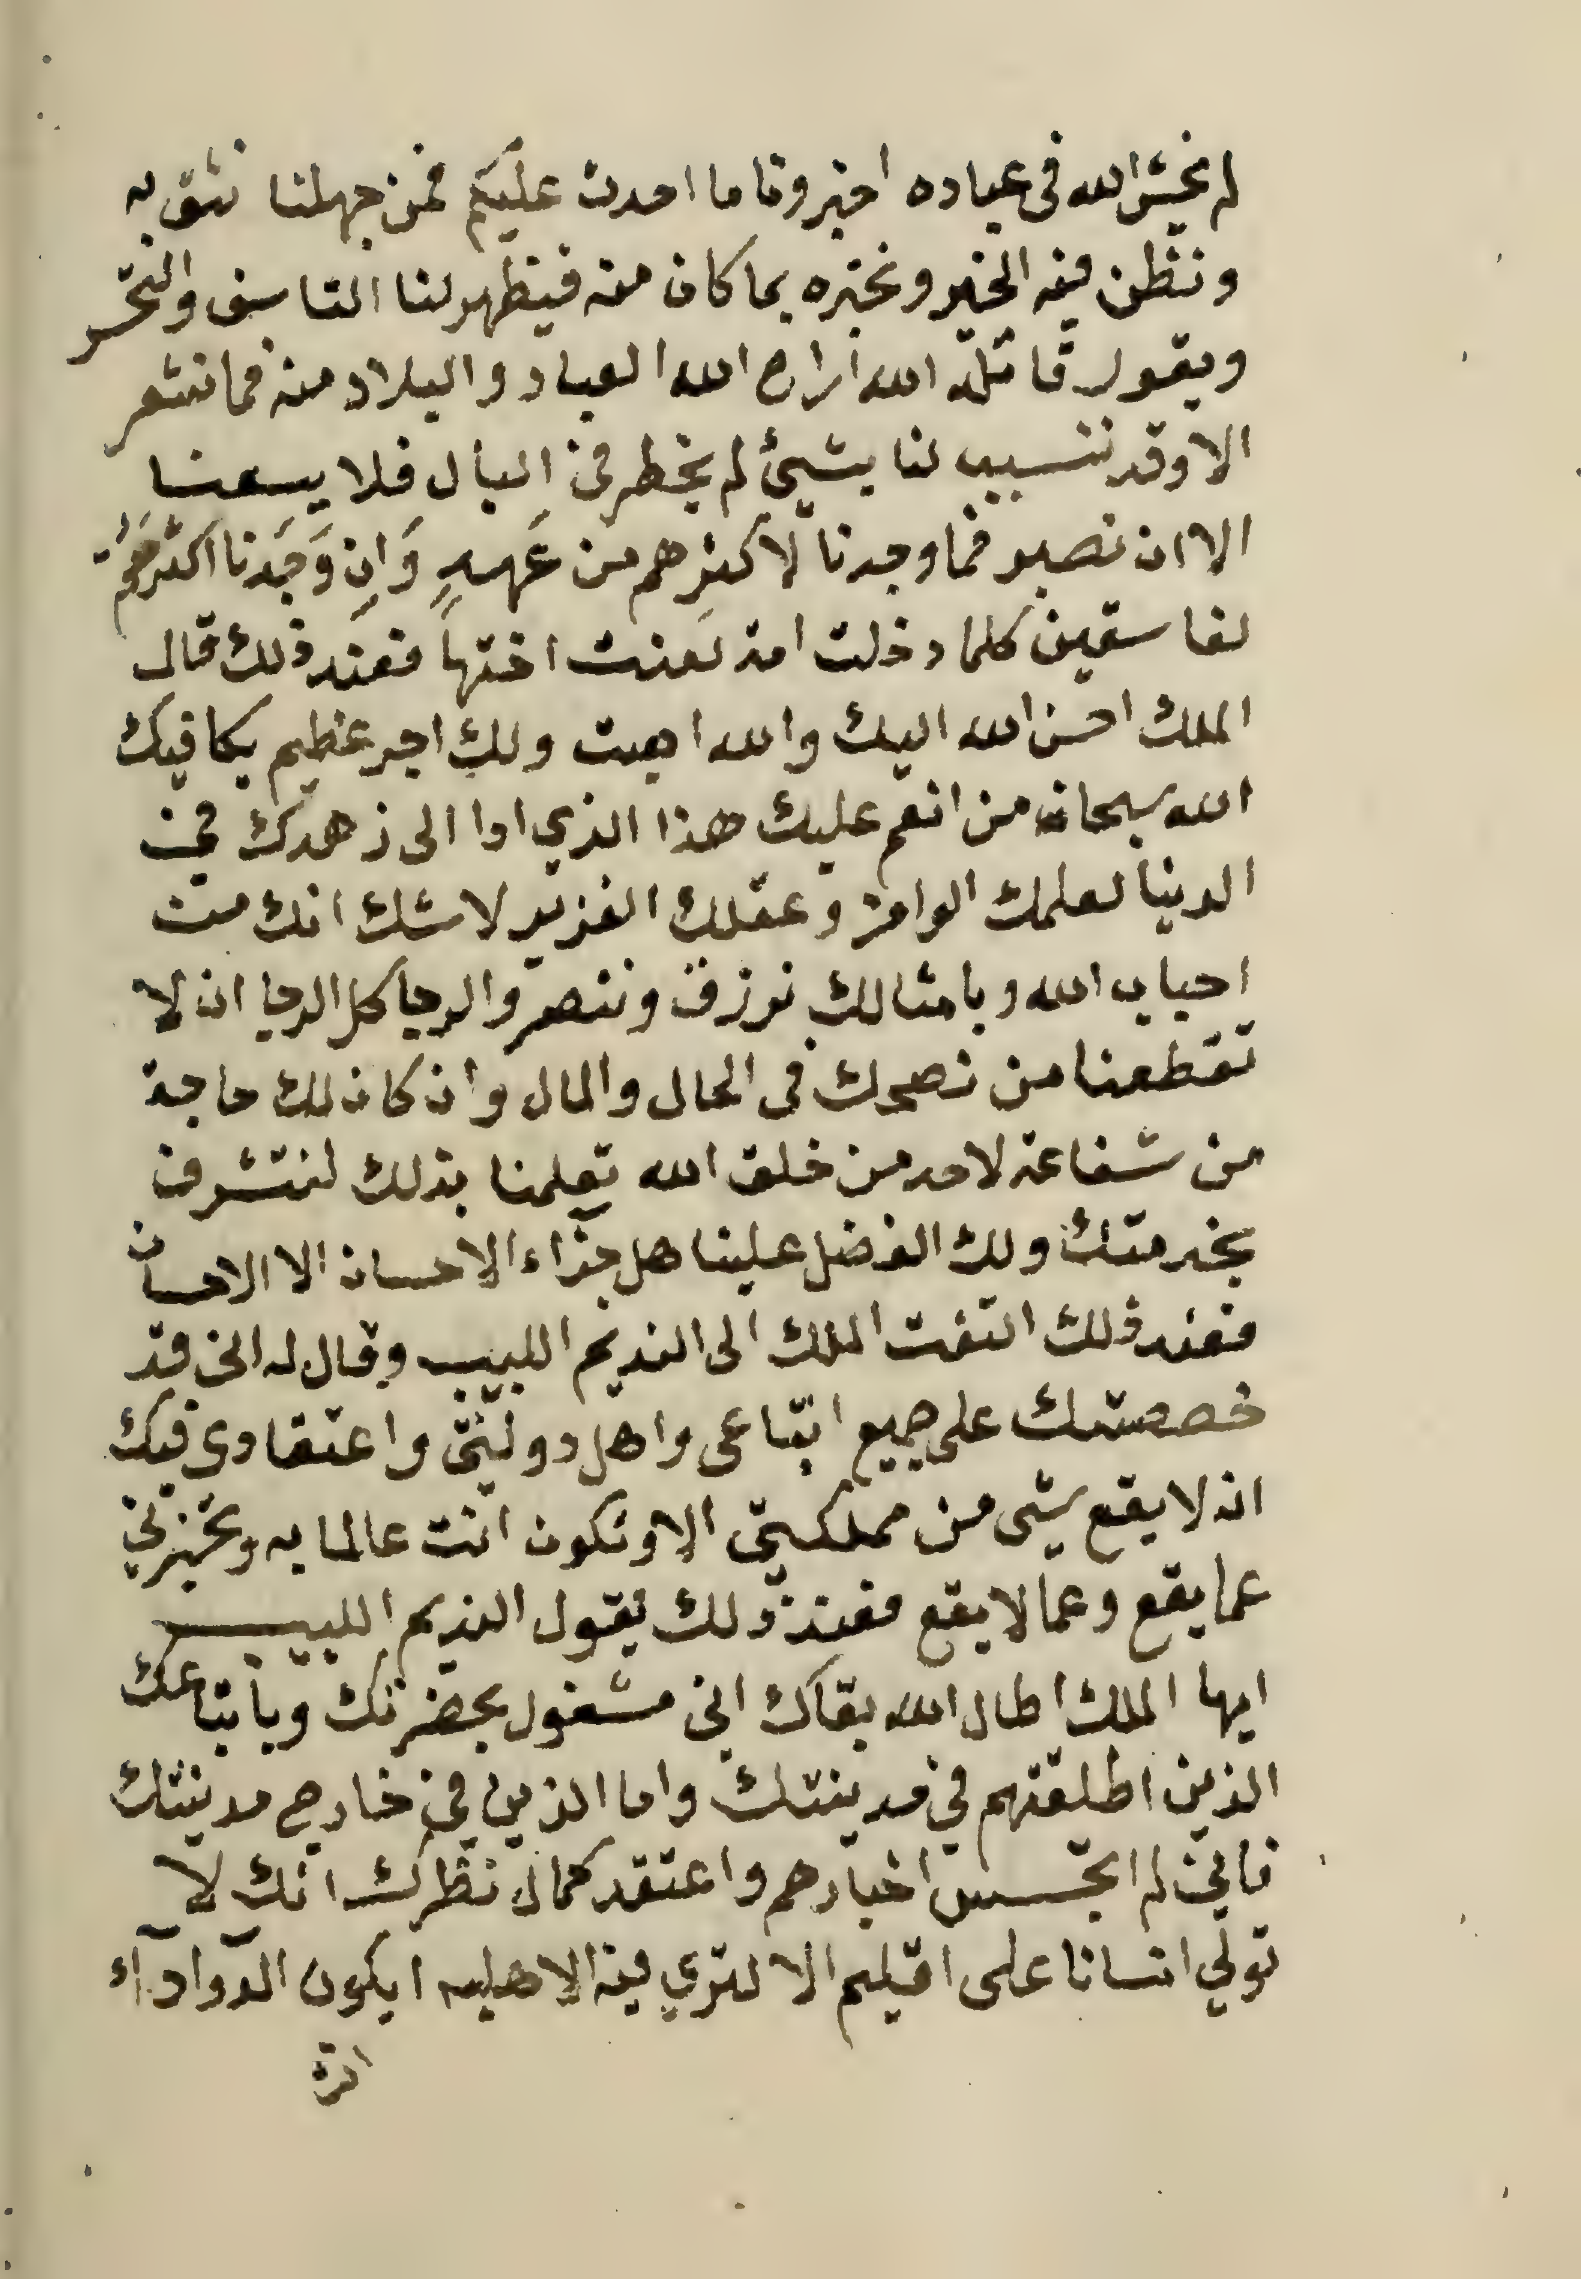 لم يخش الله في عباده اخبرونا ما احدث عليكم فمن جهلنا نثق به
ونظن فيه الخير ونخبره بما كان منه فيظهر لنا التاسف والتحسر
ويقول قاتله الله اراح الله العباد والبلاد منه فما نشعر
الا وقد تسبب لنا بشيئ لم يخطر في البال فلا يسعنا
الا ان نصبر فما وجدنا لاكثرهم من عَهدٍ وَاِن وَجَدنا اكثرهُم
لفاسقين كلما دخلت امة لعنت اختها فعند ذلك قال
الملك احسن الله اليك والله اصبت ولك اجر عظيم يكافيك
الله سبحانه من انعم عليك هذا الذي اوا الى زهدك في
الدنيا لعلمك الوافر وعقلك الغزير لا شك انك من
احباب الله وبامثالك نرزق وننصر والرجا كل الرجا ان لا
تقطعنا من نصحك في الحال والمال وان كان لك حاجة
من شفاعة لاحد من خلق الله تعلمنا بذلك لنتشرف
بخدمتك ولك الفضل علينا هل جزاء الاحسان الا الاحسان
فعند ذلك التفت الملك الى النديم اللبيب وقال له اني قد
خصصتك على جميع اتباعى واهل دولتى واعتقادى فيك
انه لا يقع شى من مملكتى الا وتكون انت عالما به وتخبرني
عما يقع وعما لا يقع فعند ذلك يقول النديم اللبيب
ايها الملك اطال الله بقاك انى مشغول بحضرتك وباتباعك
الذين اطلقتهم في مدينتك واما الذين في خارج مدينتك
فاني لم اتجسس اخبارهم واعتقد كمال نظرك انك لا
تولي انسانا على اقليم الا لترى فيه الاهليه ايكون الدوادآء